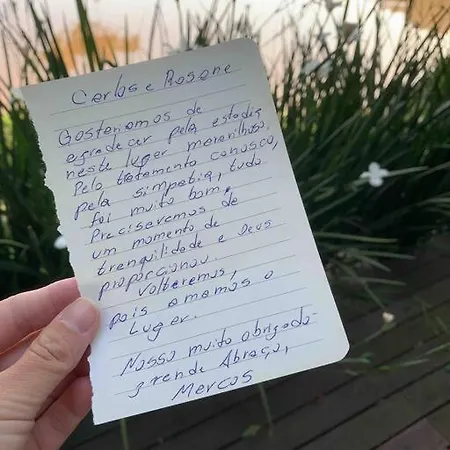 Carlos e Rosane
Gostaríamos de
agradecer pela estadia
neste lugar maravilhoso.
Pelo tratamento conosco,
pela simpatia, tudo
foi muito bom.
Precisavemos de
um momento de
tranquilidade e Deus
proporcionou.
Volteremos,
pois amamos o
Lugar.
Nosso muito obrigado
grande Abraço,
Marcos